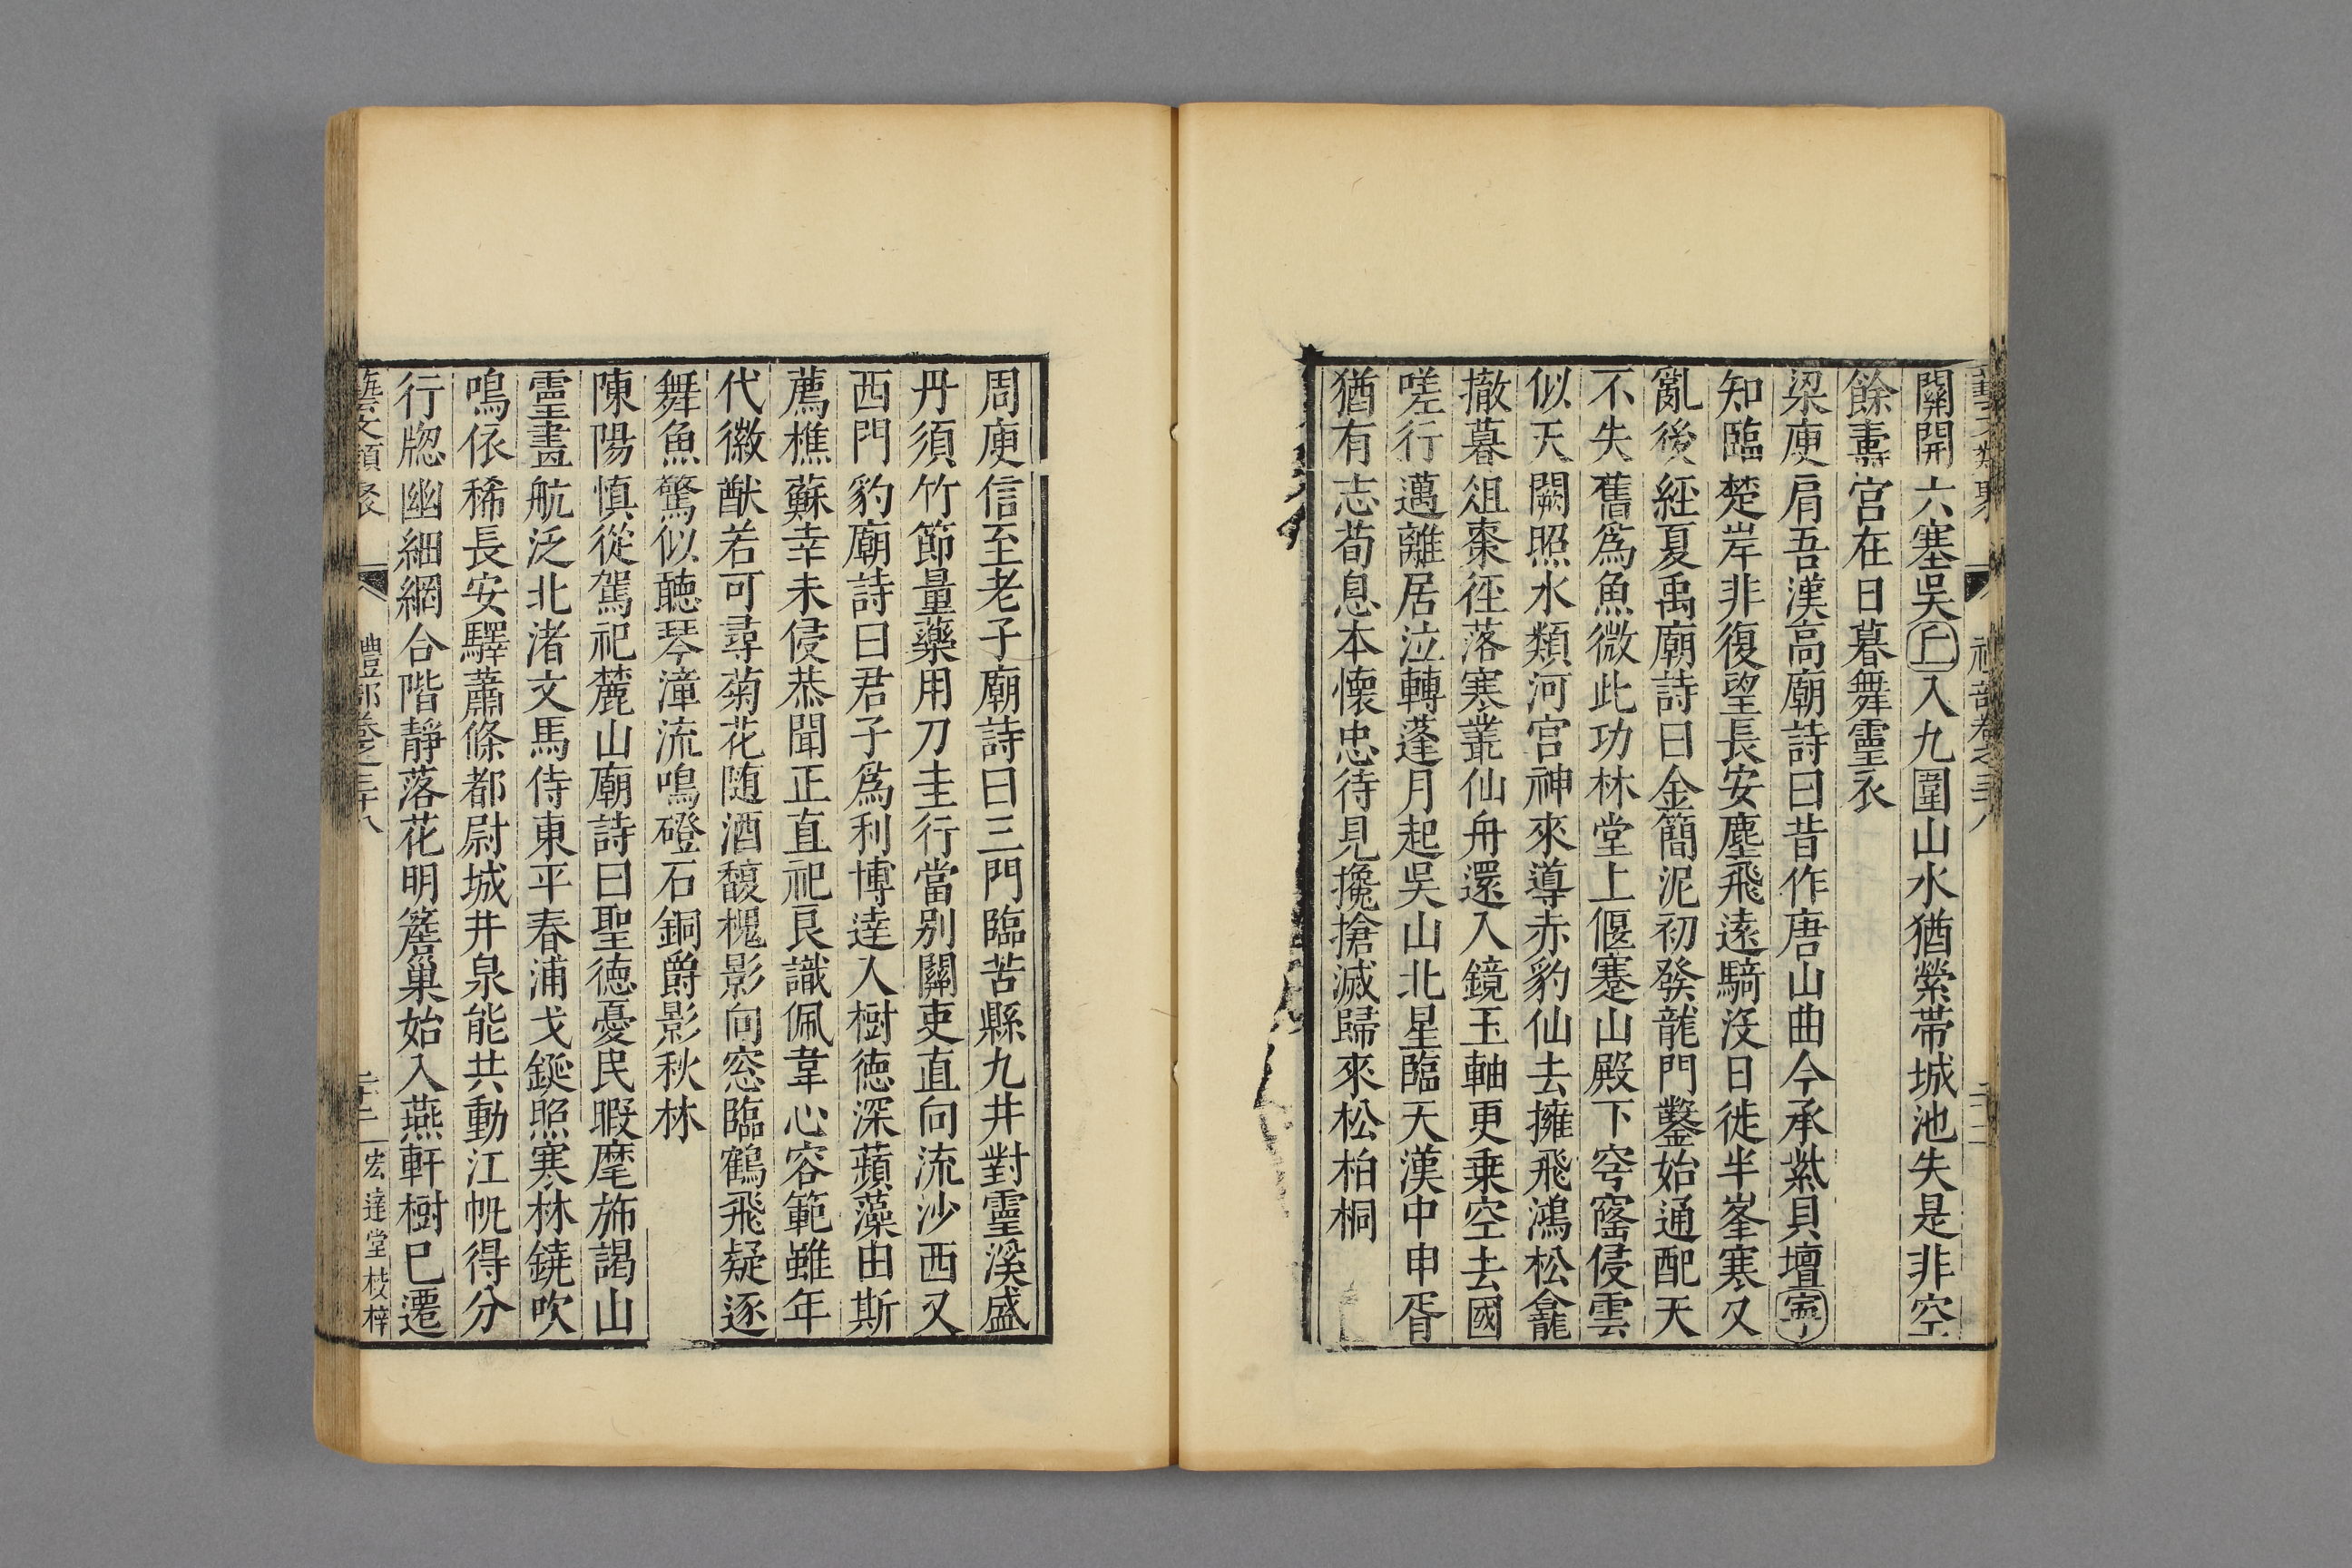 關開六塞吳丘入九圍山水猶縈帶城池失是非空
餘壽宮在日暮舞靈衣
梁庾肩吾漢高廟詩曰昔作唐山曲今承紫貝壇寧
知臨楚岸非復望長安塵飛遠騎沒日徙半峯寒又
亂後經夏禹廟詩曰金簡泥初發龍門鑿始通配天
不失舊爲魚微此功林堂上偃蹇山殿下穹窿侵雲
似天闕照水類河宮神來導赤豹仙去擁飛鴻松龕
撤暮俎棗徑落寒叢仙舟還入鏡玉軸更乗空去國
嗟行邁離居泣轉蓬月起吳山北星臨天漢中申胥
猶有志荀息本懷忠待見攙搶滅歸來松柏桐
周庾信至老子廟詩曰三門臨苦縣九井對靈溪盛
丹須竹節量藥用刀圭行當别關吏直向流沙西又
西門豹廟詩曰君子爲利博達人樹德深蘋藻由斯
薦樵蘇幸未侵恭聞正直祀良識佩韋心容範雖年
代徽猷若可尋菊花随酒馥槐影向窓臨鶴飛疑逐
舞魚驚似聽琴漳流鳴磴石銅爵影秋林
陳陽慎從駕祀麓山廟詩曰聖德憂民暇麾斾謁山
靈畫航泛北渚文馬侍東平春浦戈鋋照寒林鐃吹
鳴依稀長安驛蕭條都尉城井泉能共動江帆得分
行牎幽細網合階靜落花明簷巢始入燕軒樹已遷
藝文類聚 禮部卷之三十八 二十二 宏達堂校梓